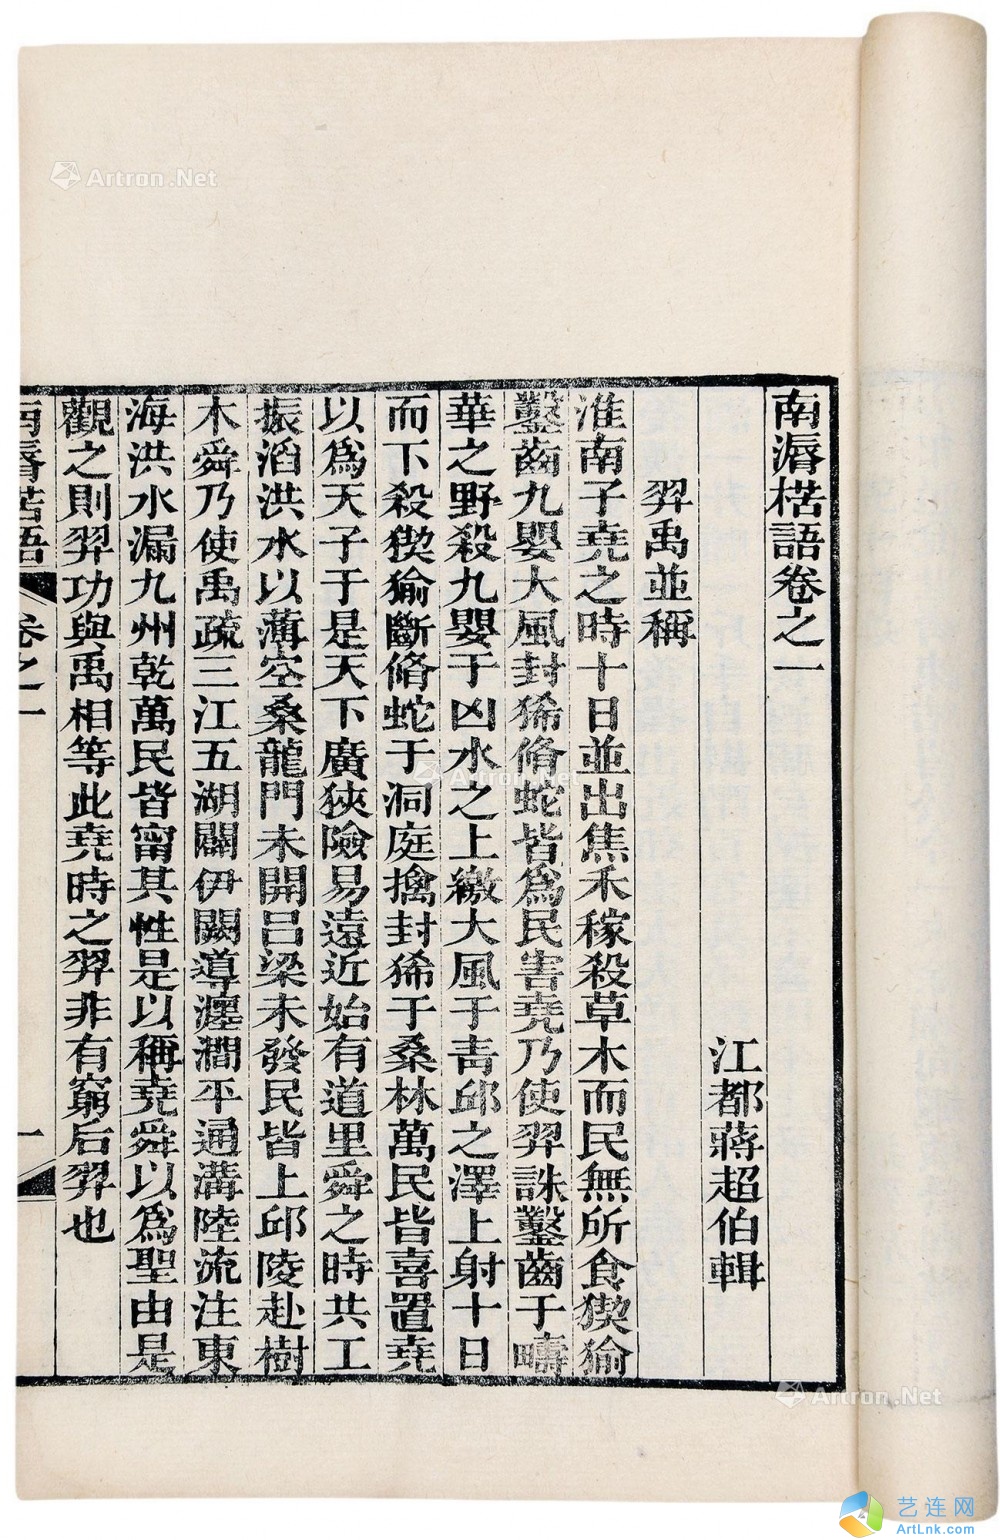 南漘楛語卷之一
江都蔣超伯輯
羿禹並稱
淮南子堯之時十日並出焦禾稼殺草木而民無所食猰㺄
鑿齒九嬰大風封狶脩蛇皆為民害堯乃使羿誅鑿齒于疇
華之野殺九嬰于凶水之上繳大風于青邱之澤上射十日
而下殺猰㺄斷脩蛇于洞庭擒封狶于桑林萬民皆喜置堯
以為天子于是天下廣狹險易遠近始有道里舜之時共工
振滔洪水以薄空桑龍門未開呂梁未發民皆上邱陵赴樹
木舜乃使禹疏三江五湖闢伊闕導瀍澗平通溝陸流注東
海洪水漏九州乾萬民皆甯其性是以稱堯舜以為聖由是
觀之則羿功與禹相等此堯時之羿非有窮后羿也
南漘楛語 卷之一 一
Artron.Net
Artron.Net
Artron.Net
艺连网
ArtLnk.com